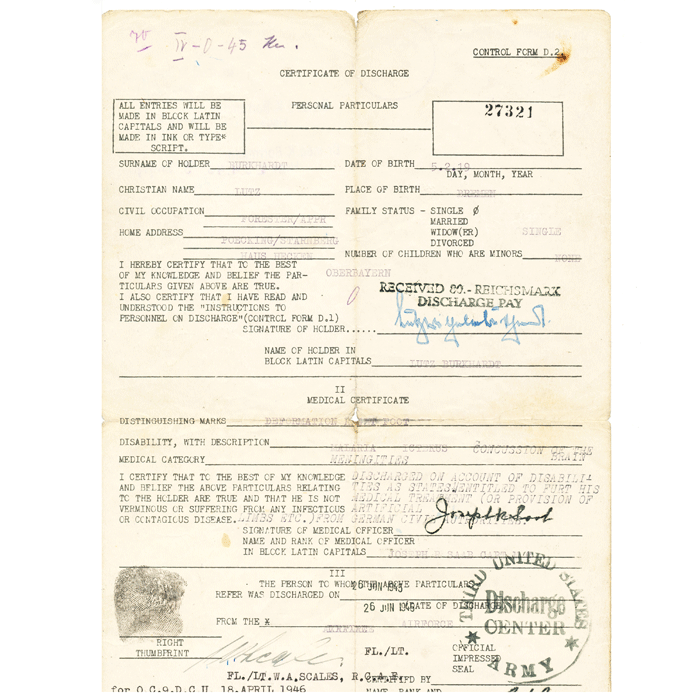 IV-0-45
CONTROL FORM D.2.
CERTIFICATE OF DISCHARGE
ALL ENTRIES WILL BE
MADE IN BLOCK LATIN
CAPITALS AND WILL BE
MADE IN INK OR TYPE=
SCRIPT.
PERSONAL PARTICULARS
27321
SURNAME OF HOLDER BURKHARDT DATE OF BIRTH 5.2.19
DAY, MONTH, YEAR
CHRISTIAN NAME LUTZ PLACE OF BIRTH BREMEN
CIVIL OCCUPATION FORESTER/APPR FAMILY STATUS - SINGLE Ø
MARRIED
WIDOW(ER) SINGLE
DIVORCED
HOME ADDRESS /STARNBERG
HAUS
OBERBAYERN
NUMBER OF CHILDREN WHO ARE MINORS NONE
I HEREBY CERTIFY THAT TO THE BEST
OF MY KNOWLEDGE AND BELIEF THE PAR-
TICULARS GIVEN ABOVE ARE TRUE.
I ALSO CERTIFY THAT I HAVE READ AND
UNDERSTOOD THE "INSTRUCTIONS TO
PERSONNEL ON DISCHARGE"(CONTROL FORM D.1)
RECEIVED 80.- REICHSMARK
DISCHARGE PAY
SIGNATURE OF HOLDER......
NAME OF HOLDER IN
BLOCK LATIN CAPITALS LUTZ BURKHARDT
II
MEDICAL CERTIFICATE
DISTINGUISHING MARKS DEFORMATION FOOT
DISABILITY, WITH DESCRIPTION MALARIA ICTERUS CONCUSSION OF THE
BRAIN
MEDICAL CATEGORY MENINGITIES
I CERTIFY THAT TO THE BEST OF MY KNOWLEDGE
AND BELIEF THE ABOVE PARTICULARS RELATING
TO THE HOLDER ARE TRUE AND THAT HE IS NOT
VERMINOUS OR SUFFERING FROM ANY INFECTIOUS
OR CONTAGIOUS DISEASE.
DISCHARGED ON ACCOUNT OF DISABILI-
TIES AS
MEDICAL TREATMENT (OR PROVISION OF
ARTIFICIAL
LIMBS ETC.) FROM GERMAN CIVIL AUTHORITIES.
SIGNATURE OF MEDICAL OFFICER
NAME AND RANK OF MEDICAL OFFICER
IN BLOCK LATIN CAPITALS JOSEPH
III
THE PERSON TO WHOM THE ABOVE PARTICULARS
REFER WAS DISCHARGED ON 26 JUN 1945
26 JUN 1945 (DATE OF DISCHARGE
FROM THE X AIRFORCE
RIGHT
THUMBPRINT
THIRD UNITED STATES
Discharge
CENTER
ARMY
FL./LT. OFFICIAL
IMPRESSED
SEAL
FL./LT.W.A.SCALES, R.C.A.F.
CERTIFIED BY
for O.C.9.D.C.U. 18.APRIL 1946
NAME, RANK AND